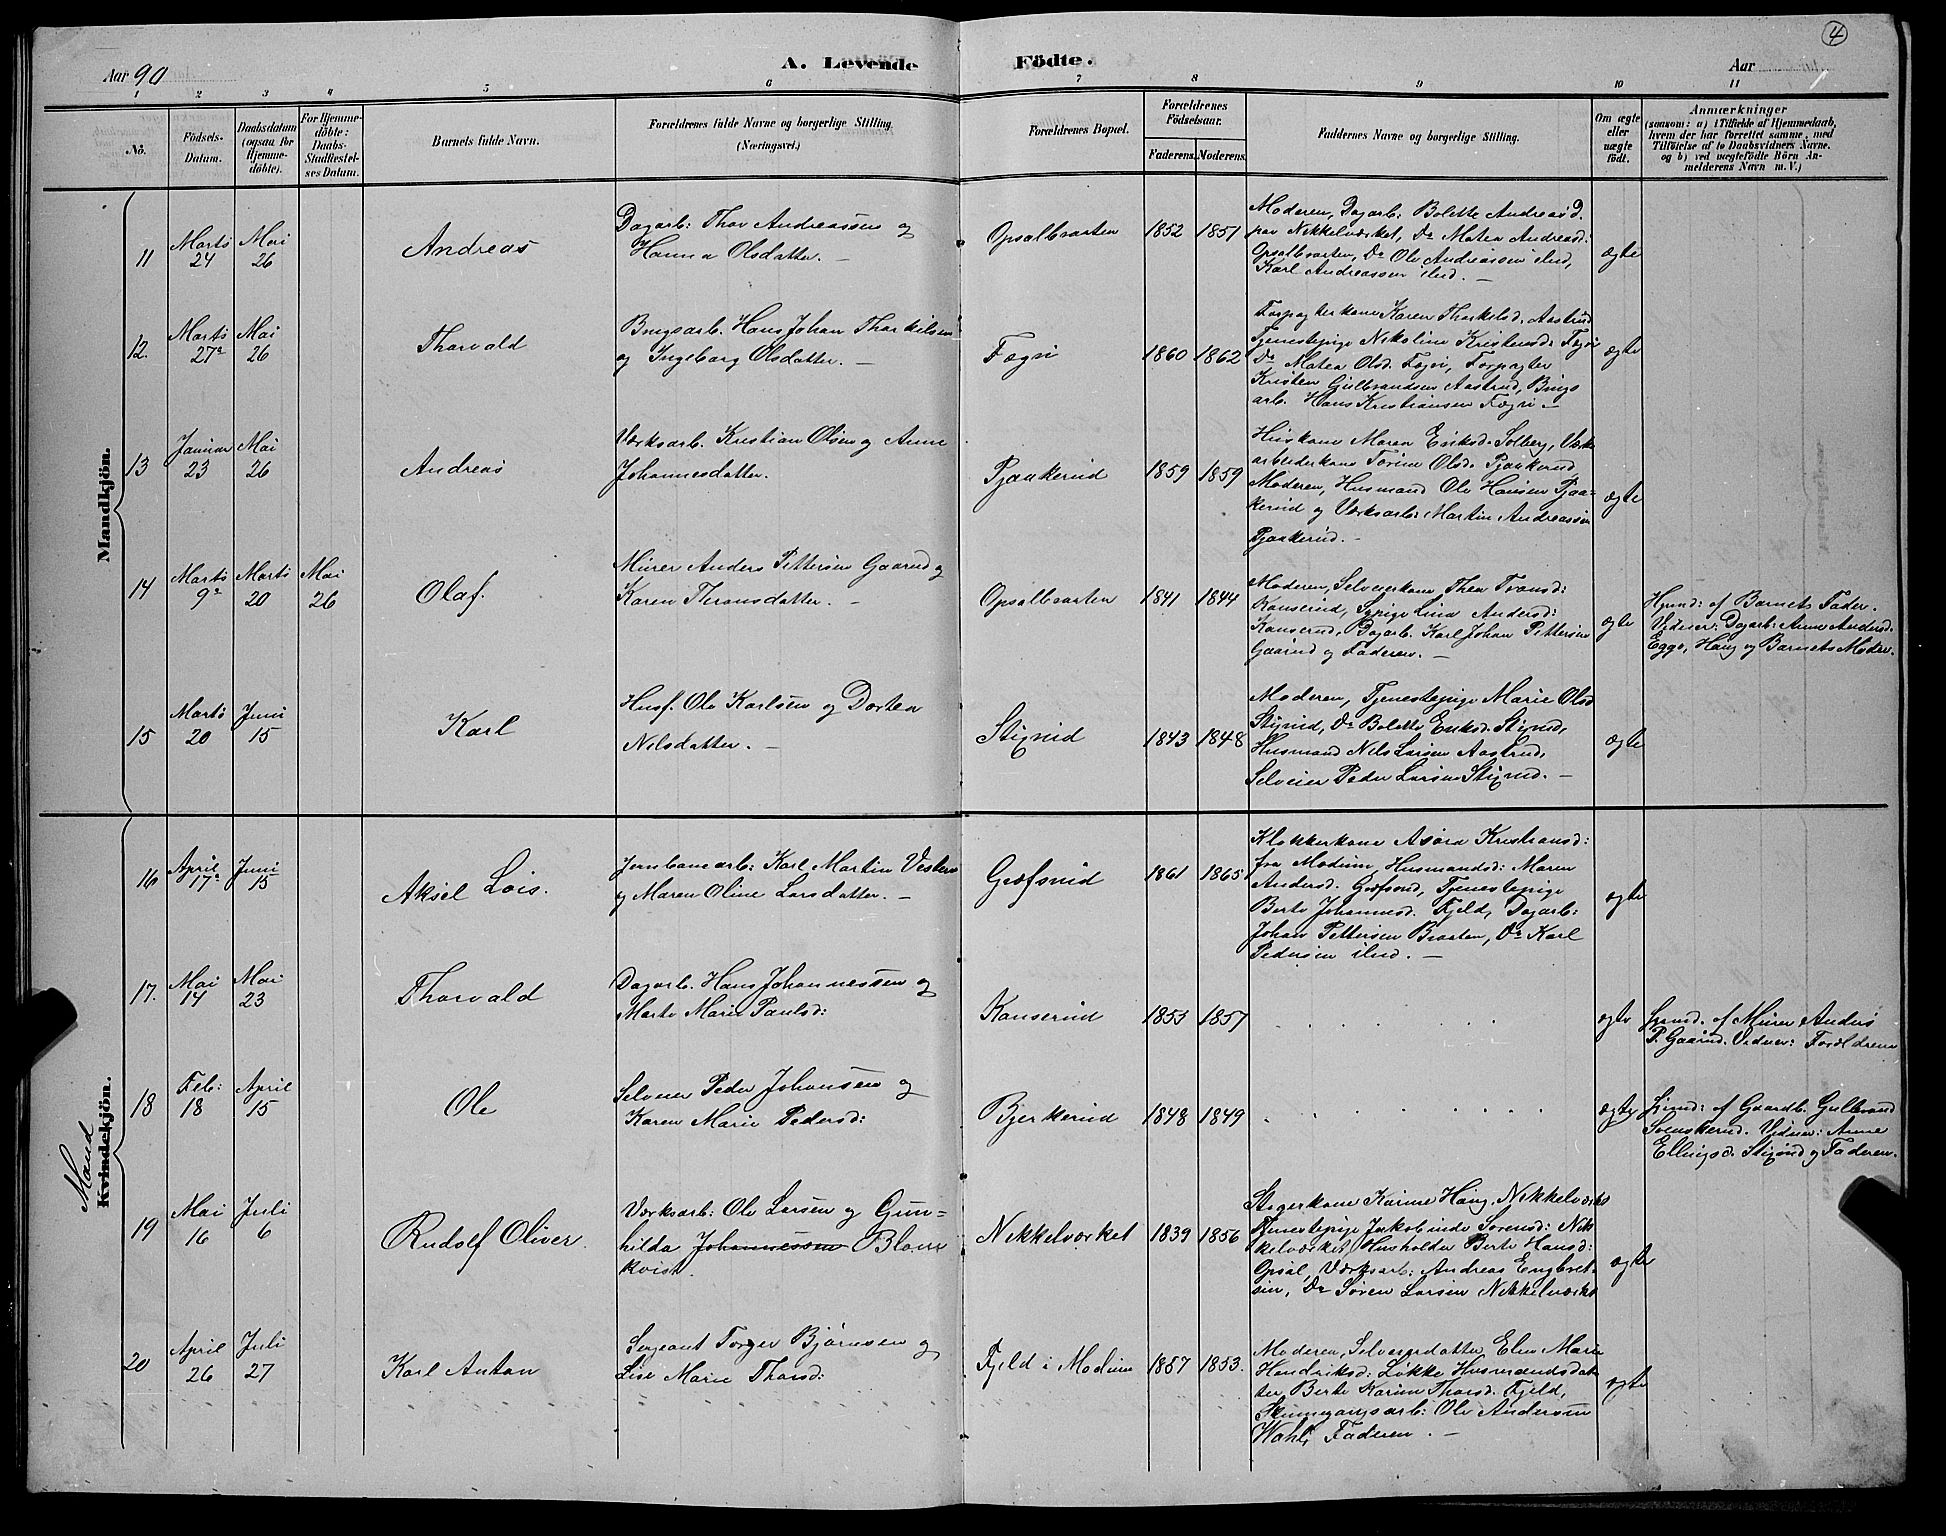 4
Aar 90
A. Levende Födte.
Aar
1 2 3 4 5 6 7 8 9 10 11
No.
Födsels-
Datum.
Daabsdatum
(ogsaa for
Hjemme-
döbte).
For Hjemme-
döbte:
Daabs-
Stadfæstel-
ses Datum.
Barnets fulde Navn.
Forældrenes fulde Navne og borgerlige Stilling.
(Næringsvei.)
Forældrenes Bopæl.
Forældrenes
Födselsaar.
Faderens. Moderens.
Faddernes Navne og borgerlige Stilling.
Om ægte
eller
uægte
födt.
Anmærkninger
(saasom: a) i Tilfælde af Hjemmedaab,
hvem der har forrettet samme, med
Tilföielse af to Daabsvidners Navne,
og b) ved uægtefödte Börn An-
melderens Navn m. V.)
Mandkjön.
11
Marts
24
Mai
26
Andreas
Dagarb: Thor Andreassen og
Hanna Olsdatter. —
Opsalbraaten
1852 1851
Moderen, Dagarb: Bolette Andreasd.
paa Nikkelværket, Do Matea Andreasd:
Opsalbraaten, Do Ole Andreassen ibid,
Karl Andreassen ibid. —
ægte
12.
Marts
27de
Mai
26
Thorvald
Brugsarb. Hans Johan Thorkilsen
og Ingeborg Olsdatter. —
Fægri
1860 1862
Forpagterkone Karen Thorkilsd. Aastrud
Tjenestepige Nikoline Kristensd: Fægri
Do Matea Olsd. Fægri, Forpagter
Kristen Gulbrandsen Aastrud, Brugs
arb. Hans Kristiansen Fægri —
ægte
13
Januar
23
Mai
26
Andreas
Værksarb. Kristian Olsen og Anne
Johannesdatter.
Pjaakerud
1859 1859
Huskone Maren Eriksd. Solberg, Værks
arbeiderkone Torine Olsd. Pjaakerud,
Moderen, Husmand Ole Hansen Pjaa-
kerud og Værksarb: Martin Andreassen
Pjaakerud. —
ægte
14
Marts
9de
Marts
20
Mai
26
Olaf.
Murer Anders Pettersen Gaarud og
Karen Thronsdatter. —
Opsalbraaten
1841 1844
Moderen, Selveierkone Thea Tronsd:
Kanserud, Sypige Lina Andersd:
Kanserud, Dagarb. Karl Johan Pettersen
Gaarud og Faderen. —
ægte
Hjemd: af Barnets Fader.
Vidner: Dagarb: Anne Andersd.
Egge, Haug og Barnets Moder.
15
Marts
20
Juni
15
Karl
Husf. Ole Karlsen og Dortea
Nilsdatter. —
Stixrud
1843 1848
Moderen, Tjenestepige Marie Olsd
Stixrud, Do Bolette Eriksd. Stixrud,
Husmand Nils Larsen Aastrud,
Selveier Peder Larsen Stixrud. —
ægte
Mand
Kvindekjön.
16
April
17de
Juni
15
Aksel Lois.
Jernbanearb: Karl Martin Vestern
og Maren Oline Larsdatter. —
Græfsrud
1861 1865
Klokkerkone Asora Kristiansd:
fra Modum, Husmandsd: Maren
Andersd. Græfsrud, Tjenestepige
Berte Johannesd. Fjeld, Dagarb:
Johan Pettersen Braaten, Do Karl
Pedersen ibid. —
ægte
17.
Mai
14
Mai
23
Thorvald
Dagarb. Hans Johannessen og
Marte Marie Paulsd:
Kanserud
1853 1857
ægte
Hjemd. af Murer Anders
P. Gaarud. Vidner: Forældrene
18
Feb:
18
April
15
Ole
Selveier Peder Johansen og
Karen Marie Pedersd:
Bjerkerud
1848 1849
ægte
Hjemd: af Gaardb. Gulbrand
Svenskerud. Vidner: Anne
Ellingsd. Stixrud og Faderen.
19
Mai
16
Juli
6
Rudolf Oliver.
Værksarb: Ole Larsen og Gun-
hilda Johannessen Blom
kvist.
Nikkelværket
1839 1856
Stigerkone Karine Haug, Nikkelværket
Tjenestepige Jakobinde Sørensd: Nik
kelværket, Husholder Berte Hansd:
Opsal, Værksarb: Andreas Engbret-
sen, Do Søren Larsen Nikkelværket
ægte
20
April
26
Juli
27
Karl Anton
Sergeant Torger Bjørnsen og
Lise Marie Thorsd:
Fjeld i Modum
1857 1853.
Moderen, Selveierdatter Elen Marie
Hendriksd: Løkke Husmandsdat
ter, Berte Karine Thorsd. Fjeld,
Skinnegangsarb: Ole Andersen
Wahl, Faderen. —
ægte